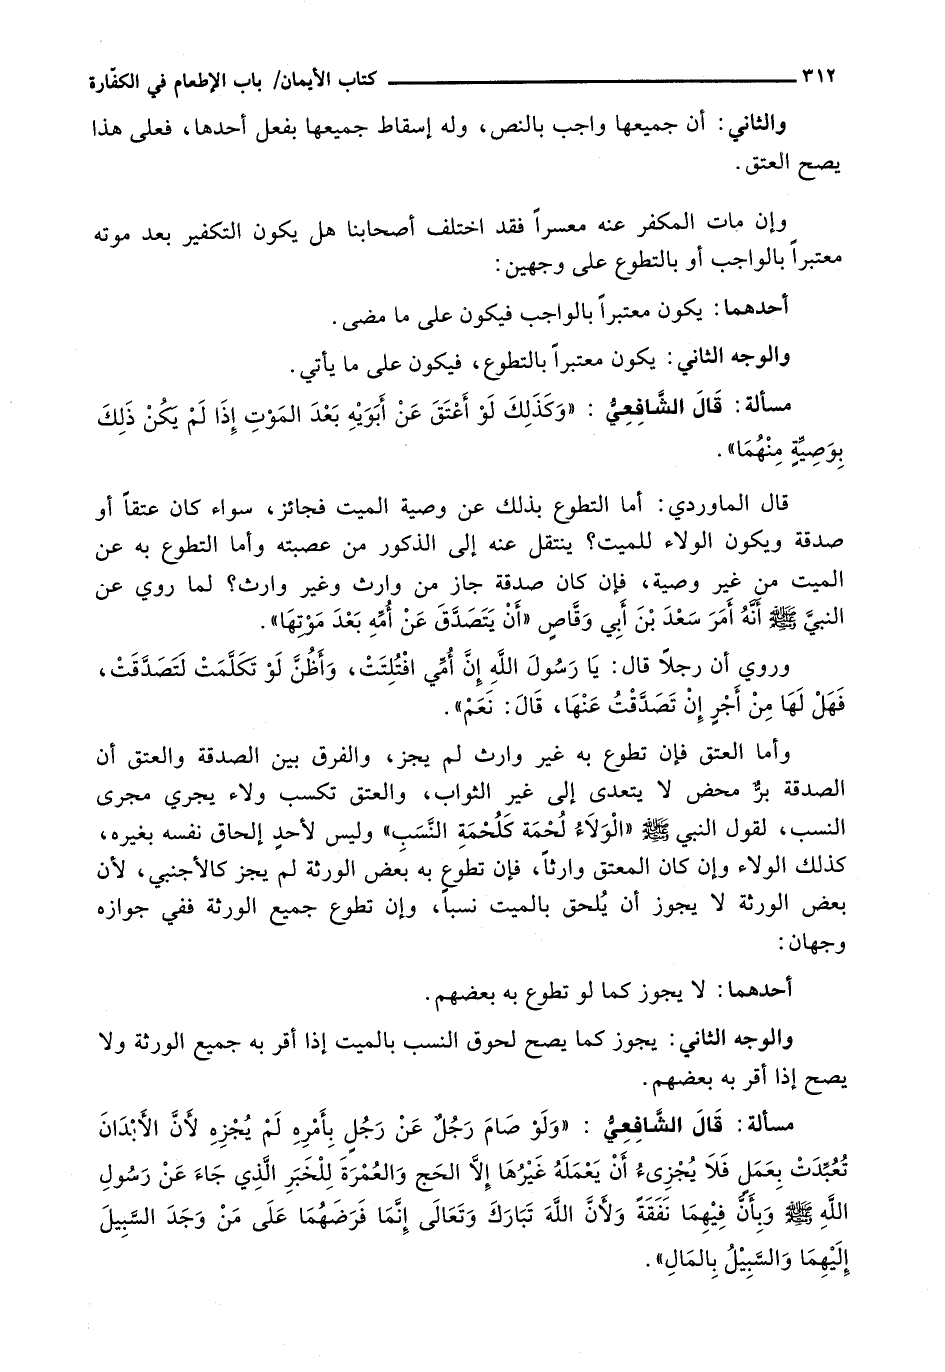 ٣١٢ ــــــــــــــــــــــــــــــ كتاب الأيمان/ باب الإطعام في الكفّارة
والثاني: أن جميعها واجب بالنص، وله إسقاط جميعها بفعل أحدها، فعلى هذا
يصح العتق.
وإن مات المكفر عنه معسراً فقد اختلف أصحابنا هل يكون التكفير بعد موته
معتبراً بالواجب أو بالتطوع على وجهين:
أحدهما: يكون معتبراً بالواجب فيكون على ما مضى.
والوجه الثاني: يكون معتبراً بالتطوع، فيكون على ما يأتي.
مسألة: قَالَ الشَّافِعِيُّ : «وَكَذَلِكَ لَوْ أَعْتَقَ عَنْ أَبَوَيْهِ بَعْدَ المَوْتِ إِذَا لَمْ يَكُنْ ذَلِكَ
بِوَصِيَّةٍ مِنْهُمَا».
قال الماوردي: أما التطوع بذلك عن وصية الميت فجائز، سواء كان عتقاً أو
صدقة ويكون الولاء للميت؟ ينتقل عنه إلى الذكور من عصبته وأما التطوع به عن
الميت من غير وصية، فإن كان صدقة جاز من وارث وغير وارث؟ لما روي عن
النبيَّ ﷺ أَنَّهُ أَمَرَ سَعْدَ بْنَ أَبِي وَقَّاصٍ «أَنْ يَتَصَدَّقَ عَنْ أُمِّهِ بَعْدَ مَوْتِهَا».
وروي أن رجلاً قال: يَا رَسُولَ اللَّهِ إِنَّ أُمِّي افْتُلِتَتْ، وَأَظُنُّ لَوْ تَكَلَّمَتْ لَتَصَدَّقَتْ،
فَهَلْ لَهَا مِنْ أَجْرٍ إِنْ تَصَدَّقْتُ عَنْهَا، قَالَ: نَعَمْ».
وأما العتق فإن تطوع به غير وارث لم يجز، والفرق بين الصدقة والعتق أن
الصدقة برٌّ محض لا يتعدى إلى غير الثواب، والعتق تكسب ولاء يجري مجرى
النسب، لقول النبي ﷺ «الْوَلَاءُ لُحْمَة كَلُحْمَةِ النَّسَبِ» وليس لأحدٍ إلحاق نفسه بغيره،
كذلك الولاء وإن كان المعتق وارثاً، فإن تطوع به بعض الورثة لم يجز كالأجنبي، لأن
بعض الورثة لا يجوز أن يُلحق بالميت نسباً، وإن تطوع جميع الورثة ففي جوازه
وجهان:
أحدهما: لا يجوز كما لو تطوع به بعضهم.
والوجه الثاني: يجوز كما يصح لحوق النسب بالميت إذا أقر به جميع الورثة ولا
يصح إذا أقر به بعضهم.
مسألة: قَالَ الشَّافِعِيُّ : «وَلَوْ صَامَ رَجُلٌ عَنْ رَجُلٍ بِأَمْرِهِ لَمْ يُجْزِهِ لأَنَّ الأَبْدَانَ
تُعُبِّدَتْ بِعَمَلٍ فَلَا يُجْزِىءُ أَنْ يَعْمَلَهُ غَيْرُهَا إِلَّا الحَج وَالعُمْرَةَ لِلْخَبَرِ الَّذِي جَاءَ عَنْ رَسُولِ
اللَّهِ ﷺ وَبِأَنَّ فِيْهِمَا نَفَقَةً وَلأَنَّ اللَّهَ تَبَارَكَ وَتَعَالَى إِنَّمَا فَرَضَهُمَا عَلَى مَنْ وَجَدَ السَّبِيلَ
إِلَيْهِمَا وَالسَّبِيْلُ بِالمَالِ».